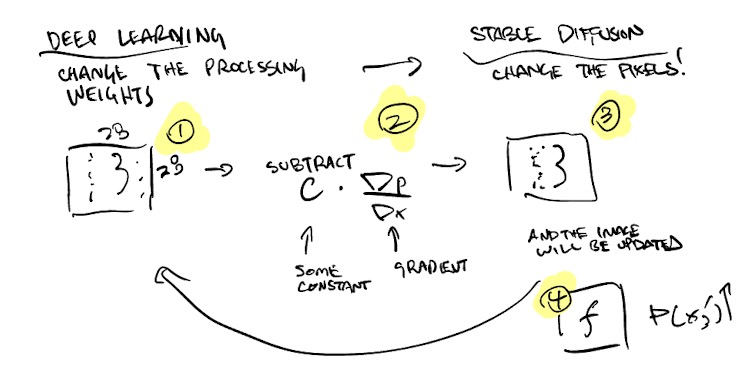 DEEP LEARNING
CHANGE THE PROCESSING
WEIGHTS
→
STABLE DIFFUSION
CHANGE THE PIXELS!
1
28
3
28
→
2
SUBTRACT
C · ∇p
∇x
→
SOME
CONSTANT
GRADIENT
3
3
AND THE IMAGE
WILL BE UPDATED
4
f
P(x₃')↑